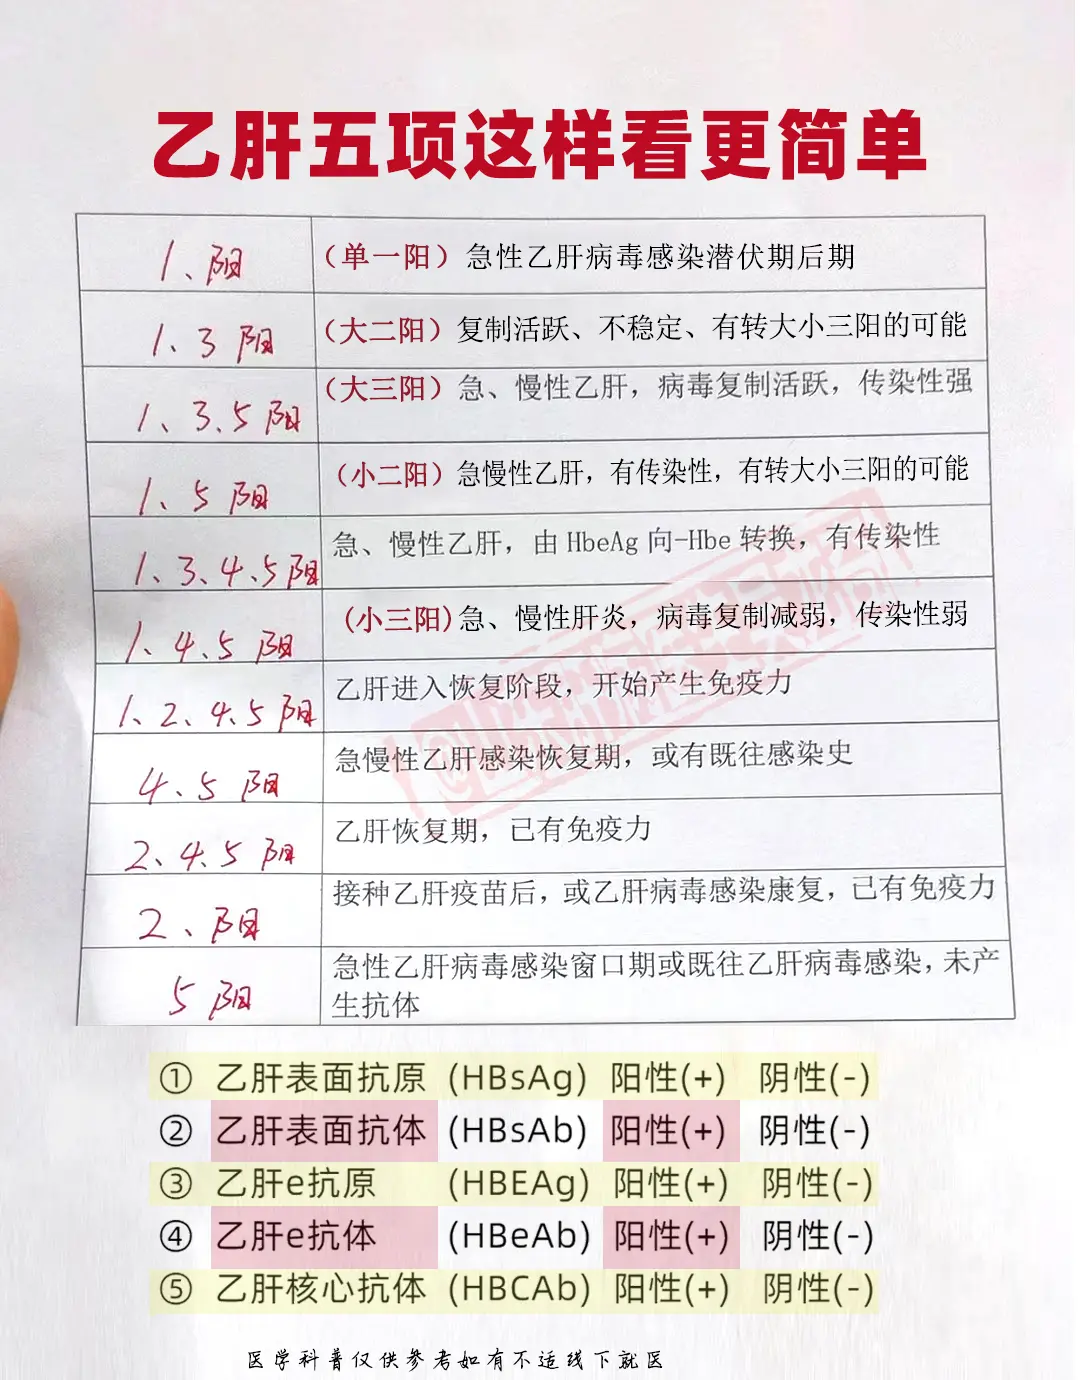 乙肝五项这样看更简单
1、阳
（单一阳）急性乙肝病毒感染潜伏期后期
1、3 阳
（大二阳）复制活跃、不稳定、有转大小三阳的可能
1、3.5 阳
（大三阳）急、慢性乙肝，病毒复制活跃，传染性强
1、5 阳
（小二阳）急慢性乙肝，有传染性，有转大小三阳的可能
1、3、4、5阳
急、慢性乙肝，由 HbeAg 向-Hbe 转换，有传染性
1、4、5 阳
(小三阳)急、慢性肝炎，病毒复制减弱，传染性弱
1、2、4.5 阳
乙肝进入恢复阶段，开始产生免疫力
4、5 阳
急慢性乙肝感染恢复期，或有既往感染史
2、4.5 阳
乙肝恢复期，已有免疫力
2、阳
接种乙肝疫苗后，或乙肝病毒感染康复，已有免疫力
5 阳
急性乙肝病毒感染窗口期或既往乙肝病毒感染，未产
生抗体
① 乙肝表面抗原 (HBsAg) 阳性(+) 阴性(-)
② 乙肝表面抗体 (HBsAb) 阳性(+) 阴性(-)
③ 乙肝e抗原 (HBEAg) 阳性(+) 阴性(-)
④ 乙肝e抗体 (HBeAb) 阳性(+) 阴性(-)
⑤ 乙肝核心抗体 (HBCAb) 阳性(+) 阴性(-)
医学科普仅供参考如有不适线下就医